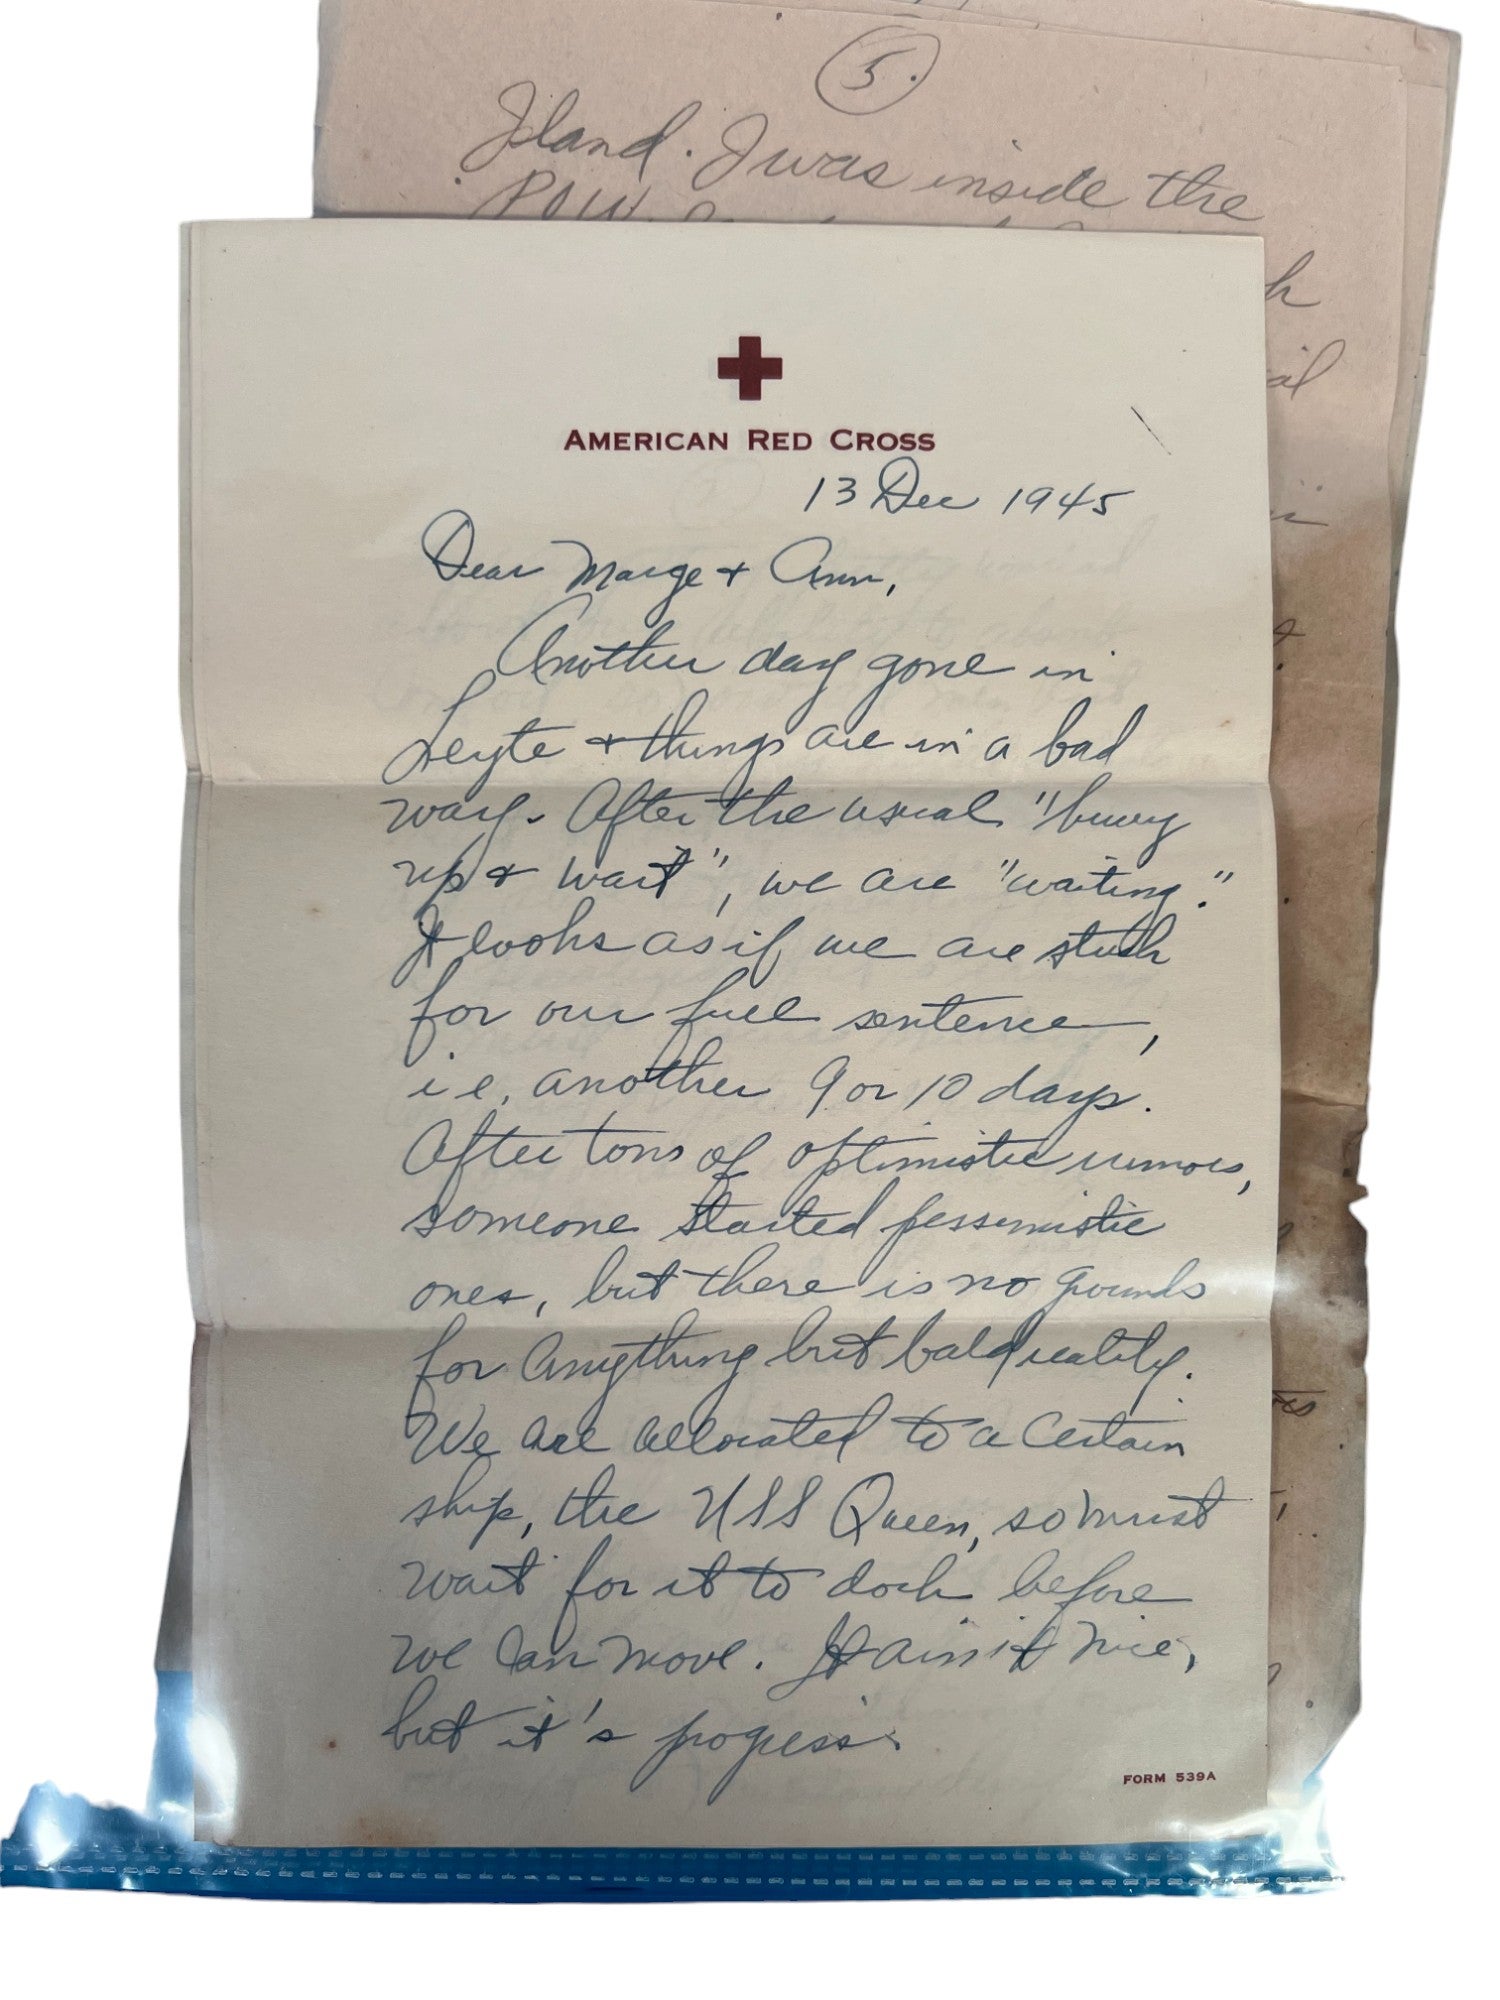 5.
Island. I was inside the
POW
h
al
AMERICAN RED CROSS
13 Dec 1945
Dear Marge + Ann,
Another day gone in
Leyte + things are in a bad
way. After the usual "hurry
up + wait", we are "waiting."
It looks as if we are stuck
for our full sentence,
i e, another 9 or 10 days.
After tons of optimistic rumors,
someone started pessimistic
ones, but there is no grounds
for anything but bald reality.
We are allocated to a certain
ship, the USS Queen, so must
wait for it to dock before
we can move. It ain't nice,
but it's progress.
FORM 539A